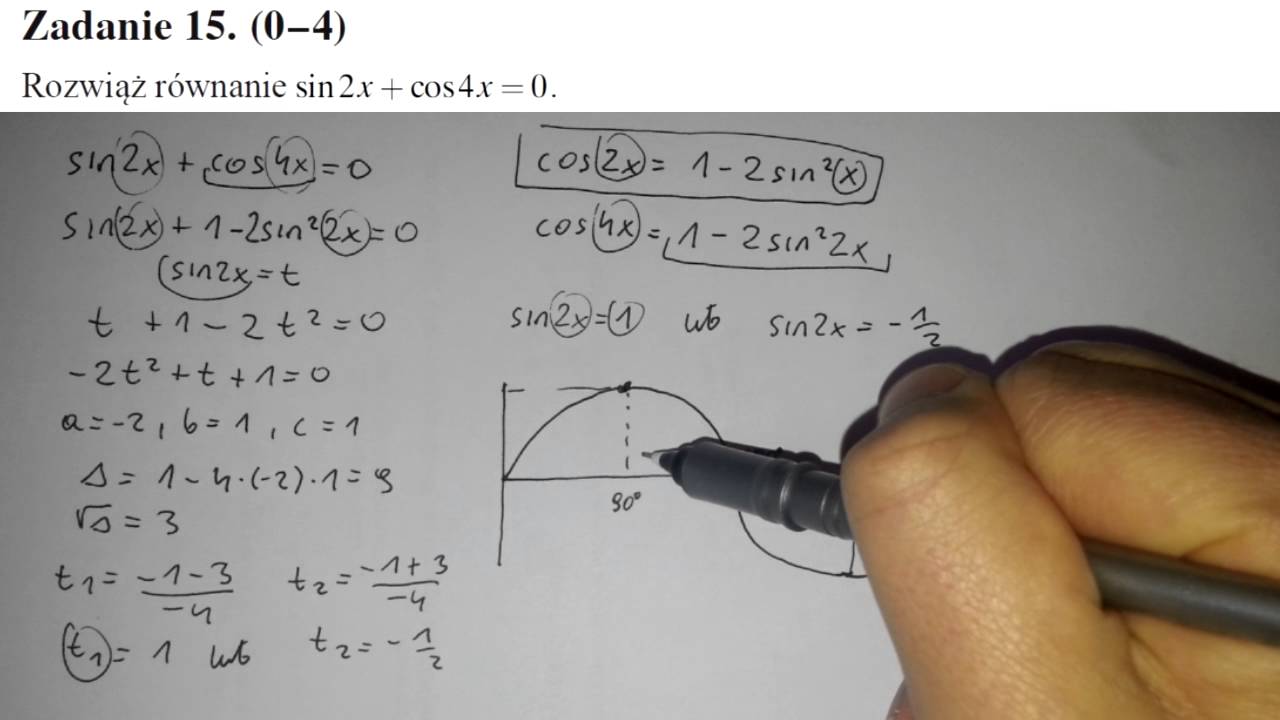 Zadanie 15. (0–4)
Rozwiąż równanie sin 2x + cos 4x = 0.
sin(2x) + cos(4x) = 0
sin(2x) + 1 - 2sin²(2x) = 0
sin2x = t
t + 1 - 2t² = 0
-2t² + t + 1 = 0
a = -2, b = 1, c = 1
Δ = 1 - 4·(-2)·1 = 9
√Δ = 3
t₁ = (-1-3)/(-4) t₂ = (-1+3)/(-4)
t₁ = 1 lub t₂ = -1/2
cos(2x) = 1 - 2sin²(x)
cos(4x) = 1 - 2sin²2x
sin(2x) = 1 lub sin2x = -1/2
90°